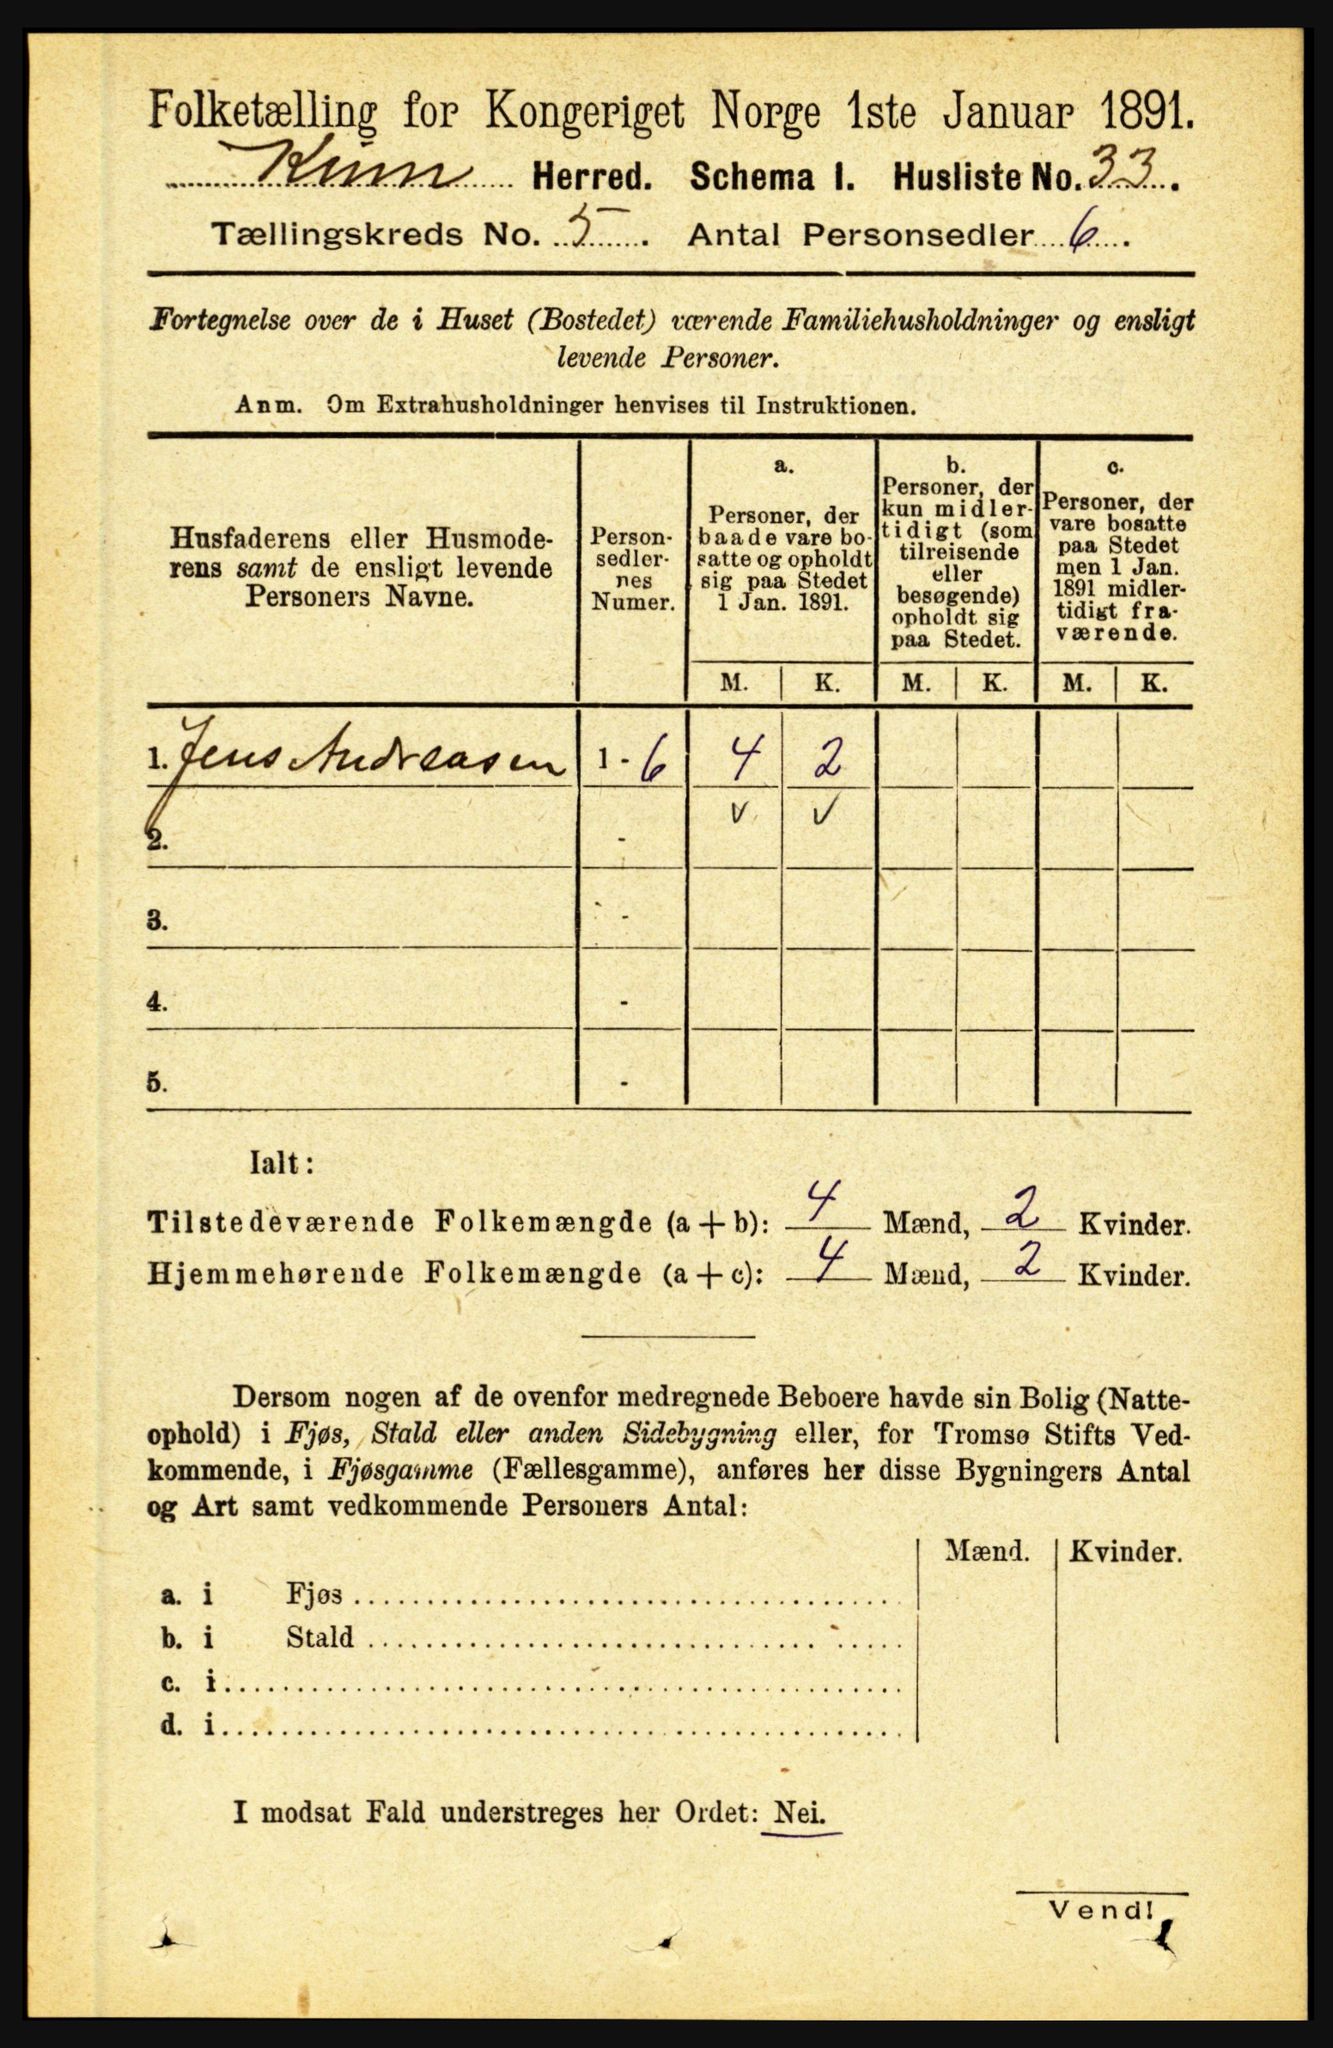 Folketælling for Kongeriget Norge 1ste Januar 1891.
Kinn Herred. Schema I. Husliste No. 33.
Tællingskreds No. 5. Antal Personsedler 6.
Fortegnelse over de i Huset (Bostedet) værende Familiehusholdninger og ensligt
levende Personer.
Anm. Om Extrahusholdninger henvises til Instruktionen.
Husfaderens eller Husmode-
rens samt de ensligt levende
Personers Navne.
Person-
sedler-
nes
Numer.
a.
Personer, der
baade vare bo-
satte og opholdt
sig paa Stedet
1 Jan. 1891.
b.
Personer, der
kun midler-
tidigt (som
tilreisende
eller
besøgende)
opholdt sig
paa Stedet.
c.
Personer, der
vare bosatte
paa Stedet
men 1 Jan.
1891 midler-
tidigt fra-
værende.
M. K. M. K. M. K.
1. Jens Andreasen 1 - 6 4 2
2. - v v
3. -
4. -
5. -
Ialt:
Tilstedeværende Folkemængde (a + b): 4 Mænd, 2 Kvinder.
Hjemmehørende Folkemængde (a + c): 4 Mænd, 2 Kvinder.
Dersom nogen af de ovenfor medregnede Beboere havde sin Bolig (Natte-
ophold) i Fjøs, Stald eller anden Sidebygning eller, for Tromsø Stifts Ved-
kommende, i Fjøsgamme (Fællesgamme), anføres her disse Bygningers Antal
og Art samt vedkommende Personers Antal:
Mænd. Kvinder.
a. i Fjøs
b. i Stald
c. i
d. i
I modsat Fald understreges her Ordet: Nei.
Vend!